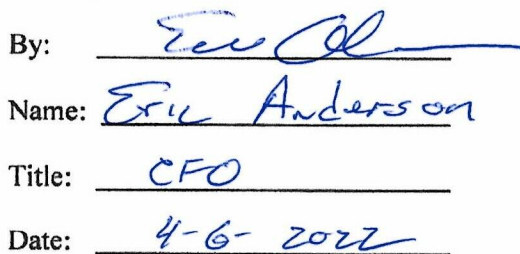 By:
Name: Eric Anderson
Title: CFO
Date: 4-6-2022